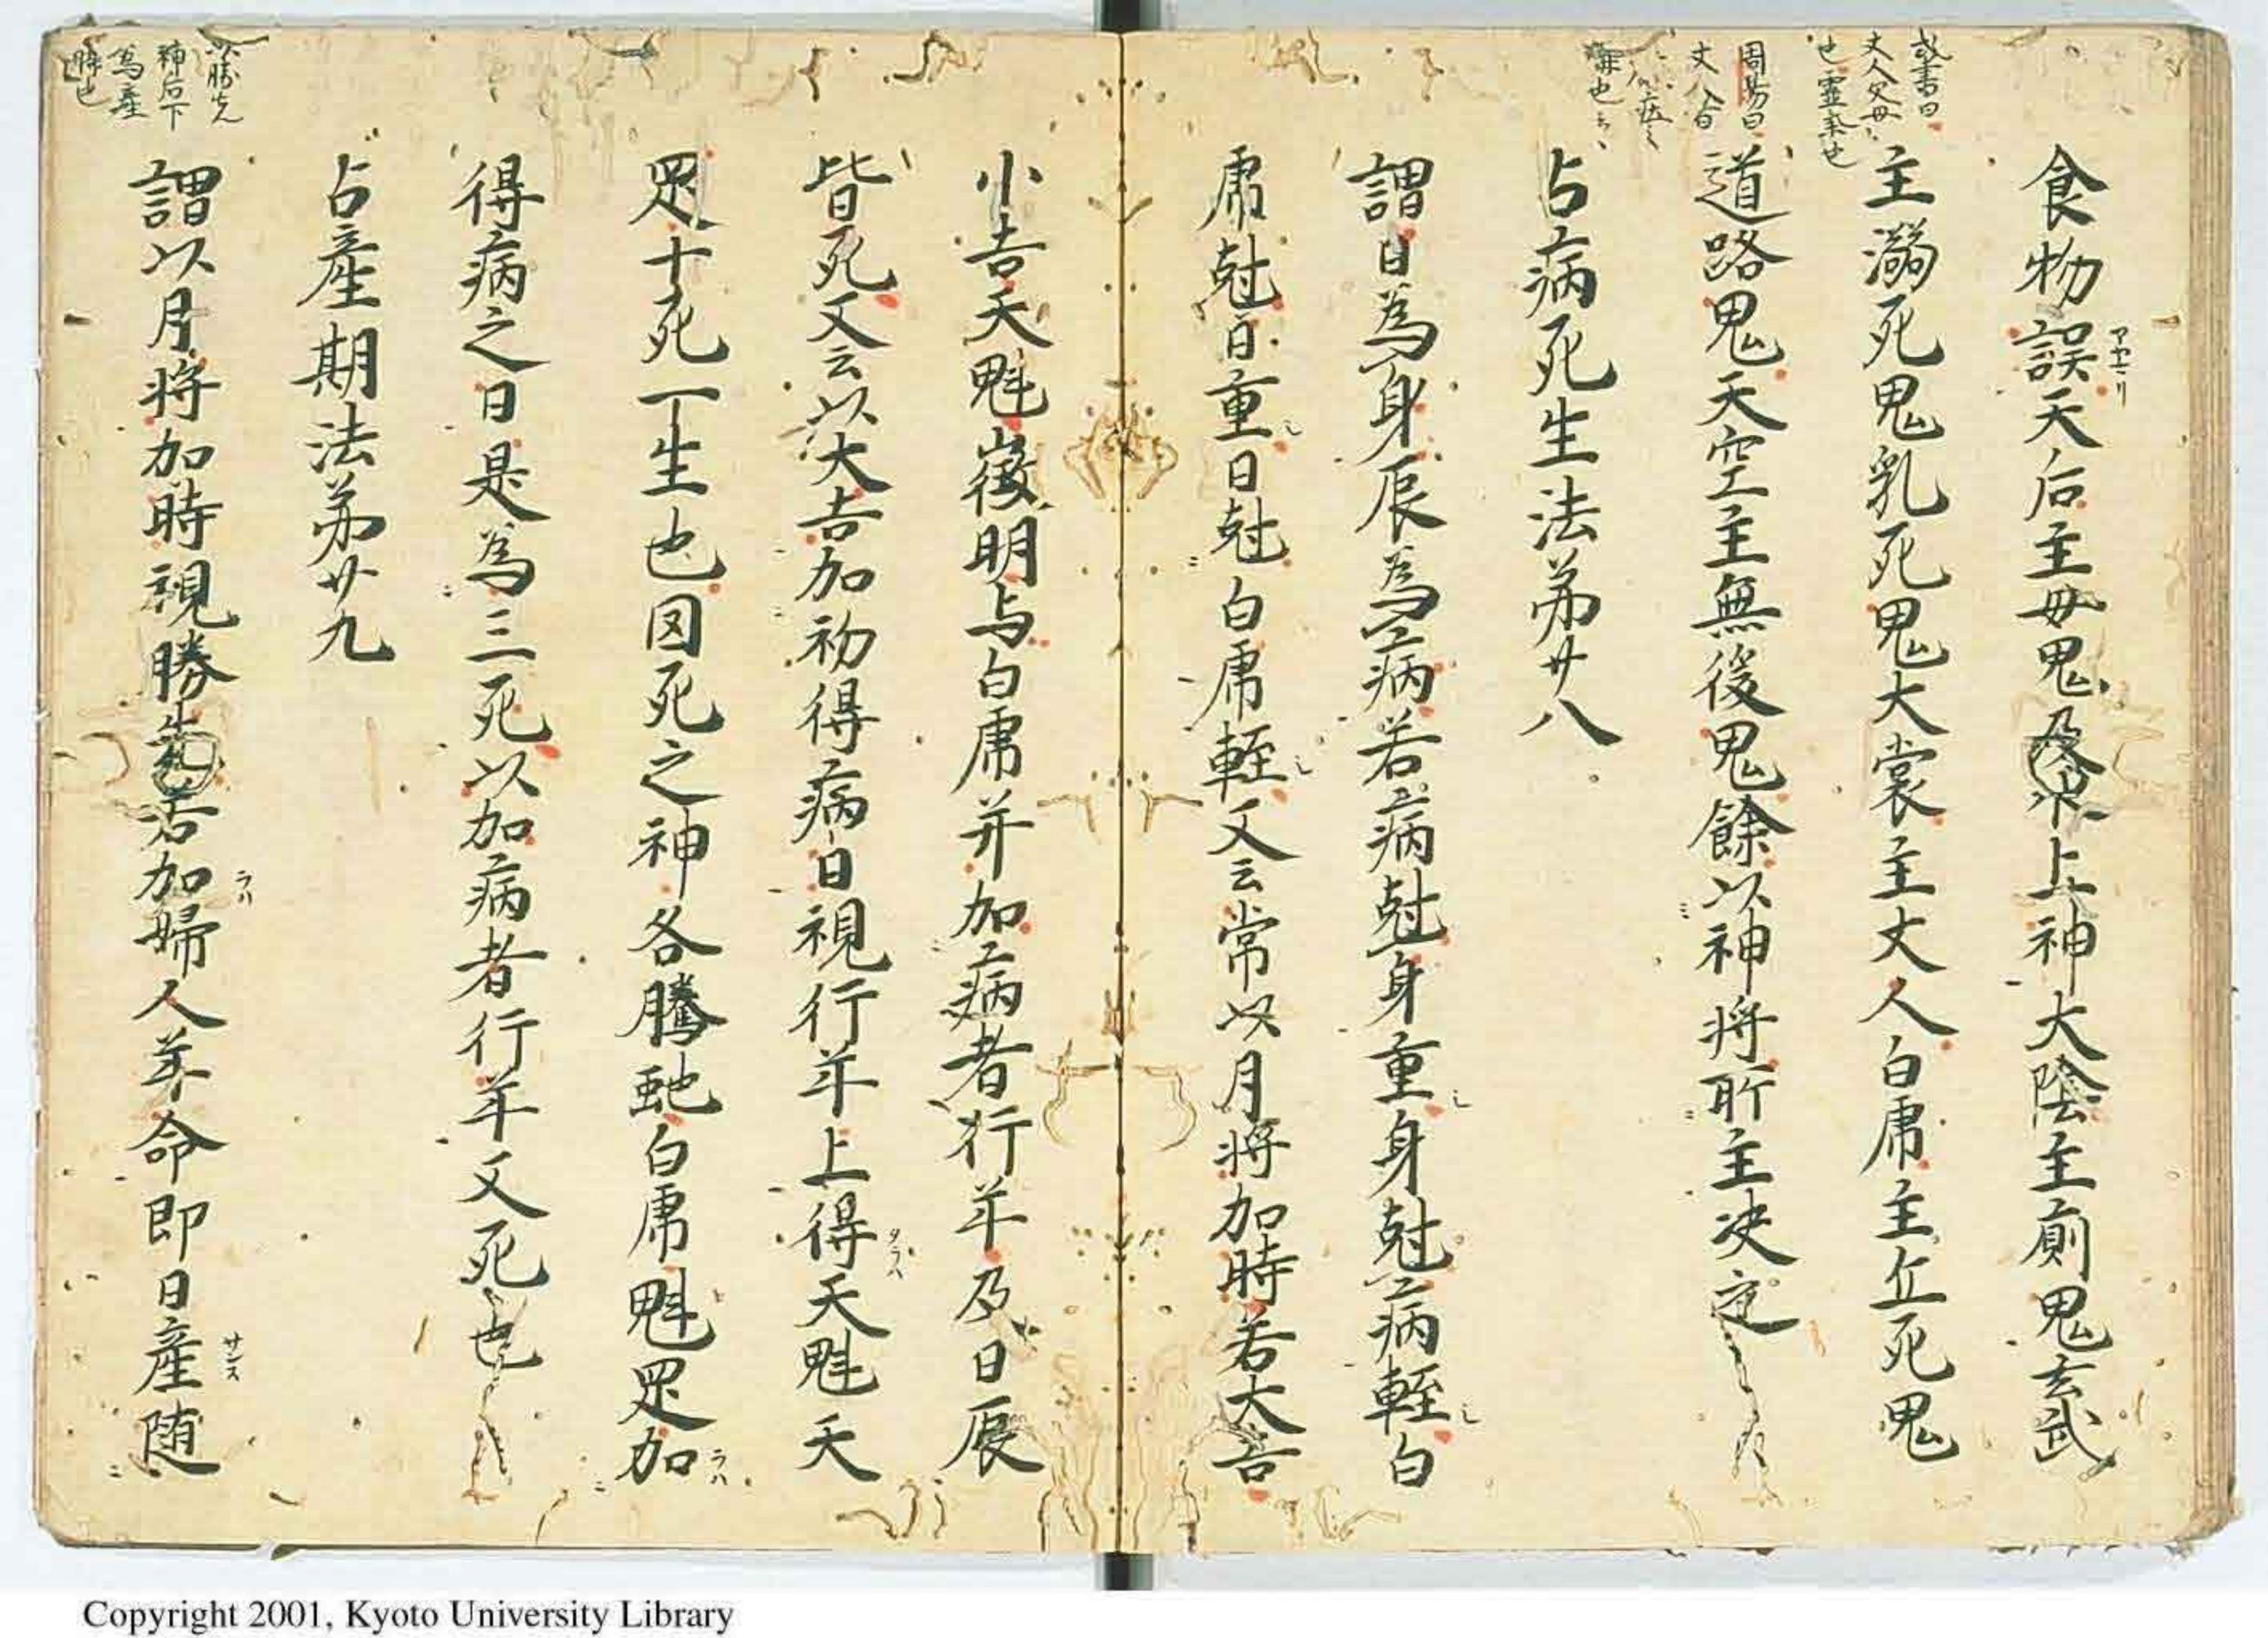 或書曰
丈人父母
也霊系也
周易曰
丈人吉
食物誤天后主母鬼及水上神大陰主厠鬼玄武
アヤマリ
主溺死鬼乳死鬼大裳主丈人白虎主丘死鬼
道路鬼天空主無後鬼餘以神将所主决定之
占病死生法第廿八
謂日為身辰為病若病尅身重身尅病軽白
虎尅日重日尅白虎軽又云常以月将加時若大吉
小吉天魁徴明与白虎并加病者行年及日辰
皆死又云以大吉加初得病日視行年上得天魁天
罡十死一生也囚死之神各騰虵白虎魁罡加
ラハ
得病之日是為三死以加病者行年又死也
占産期法第廿九
以勝先
神后下
為産
時也
謂以月将加時視勝先若加婦人年命即日産随
ラハ
サンス
Copyright 2001, Kyoto University Library